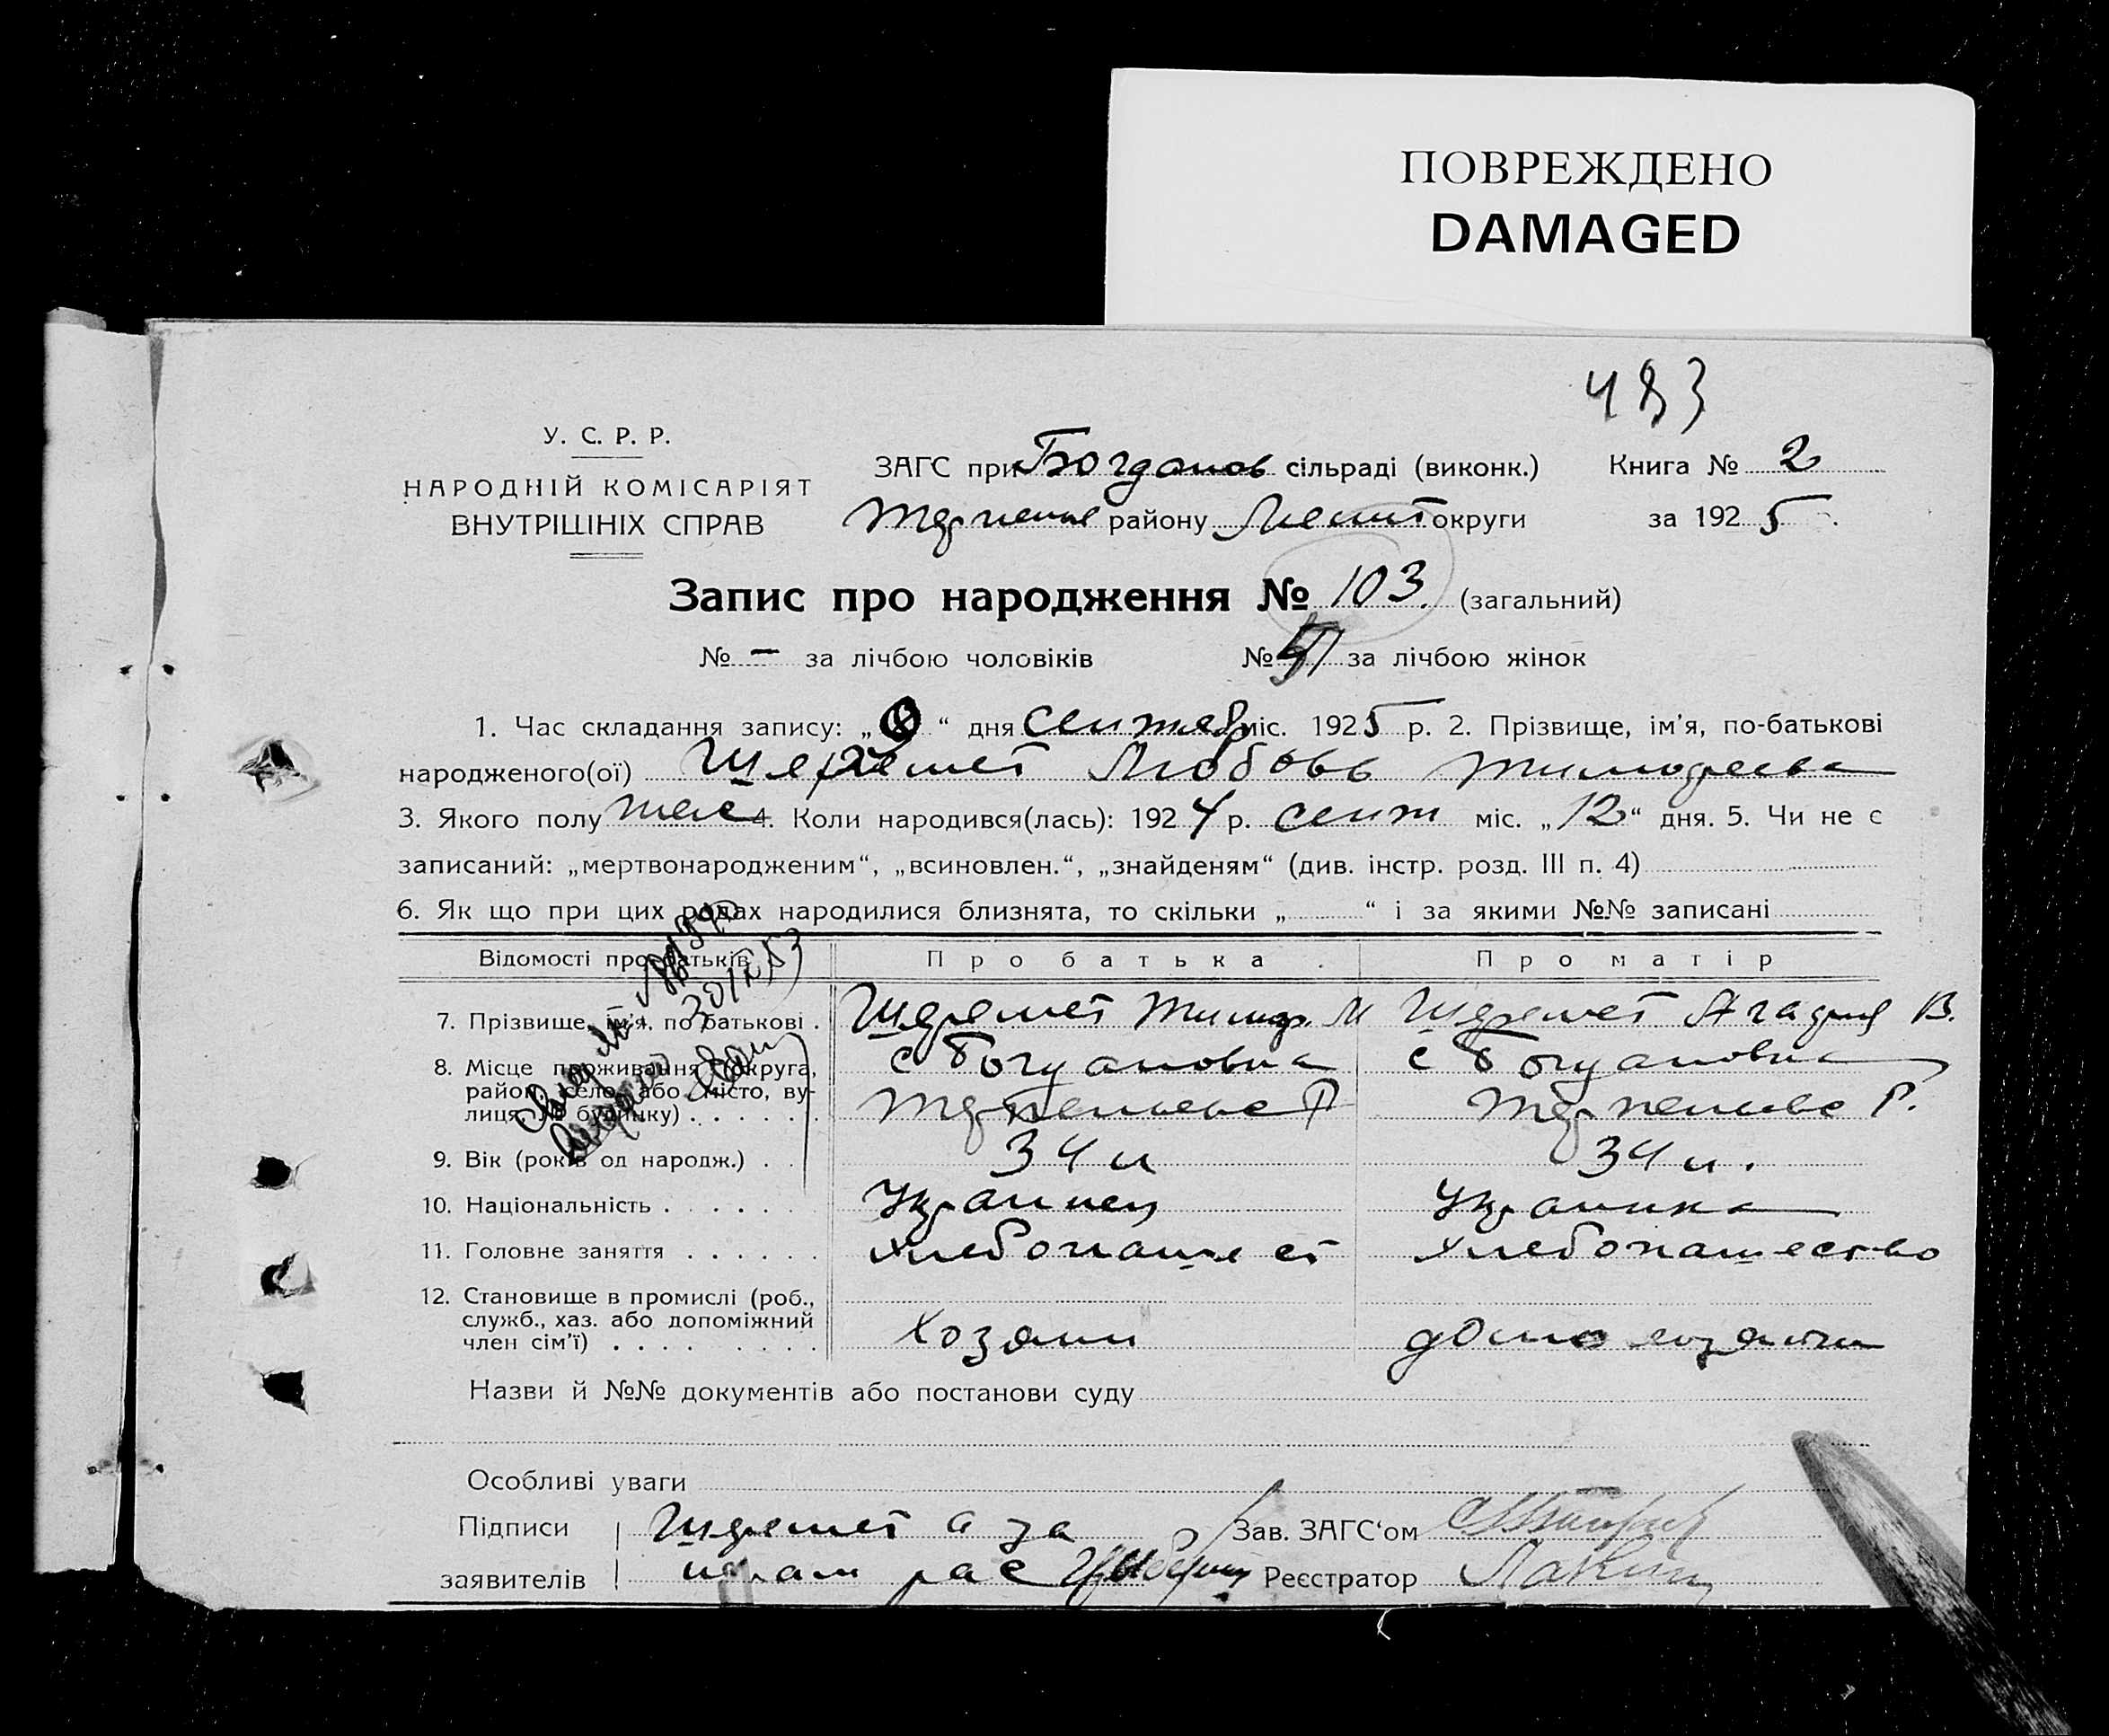 ПОВРЕЖДЕНО
DAMAGED
483
У. С. Р. Р.
НАРОДНІЙ КОМІСАРІЯТ
ВНУТРІШНІХ СПРАВ
ЗАГС при Богданов сільраді (виконк.) Книга № 2
району Мелит округи за 1925
Запис про народження № 103. (загальний)
№ – за лічбою чоловіків № за лічбою жінок
1. Час складання запису: „ “ дня сентяб міс. 1925 р. 2. Прізвище, ім'я, по-батькові
народженого(ої) Шеремет Любовь Тимофеевна
3. Якого полу жен 4. Коли народився(лась): 1924 р. сент міс. „12“ дня. 5. Чи не є
записаний: „мертвонародженим“, „всиновлен.“, „знайденям“ (див. інстр. розд. III п. 4)
6. Як що при цих родах народилися близнята, то скільки „ “ і за якими №№ записані
Відомості про батьків Про батька Про матір
7. Прізвище, ім'я, по батькові . Шеремет Тимоф. М Шеремет Агафия В.
8. Місце проживання (округа, с Богдановка с Богдановка
район, село, або місто, ву-
лиця, № будинку) . . . . . . Терпеньевс Р Терпеньевс Р.
9. Вік (років од народж.) . . 34 л 34 л.
10. Національність . . . . . . . Украинец Украинка
11. Головне заняття . . . . . . Хлебопашест Хлебопашество
12. Становище в промислі (роб.,
служб., хаз. або допоміжний
член сім'ї) . . . . . . . . Хозяин домохозяйка
Назви й №№ документів або постанови суду
Особливі уваги
Підписи Шеремет а за Зав. ЗАГС'ом
заявителів рас Реєстратор